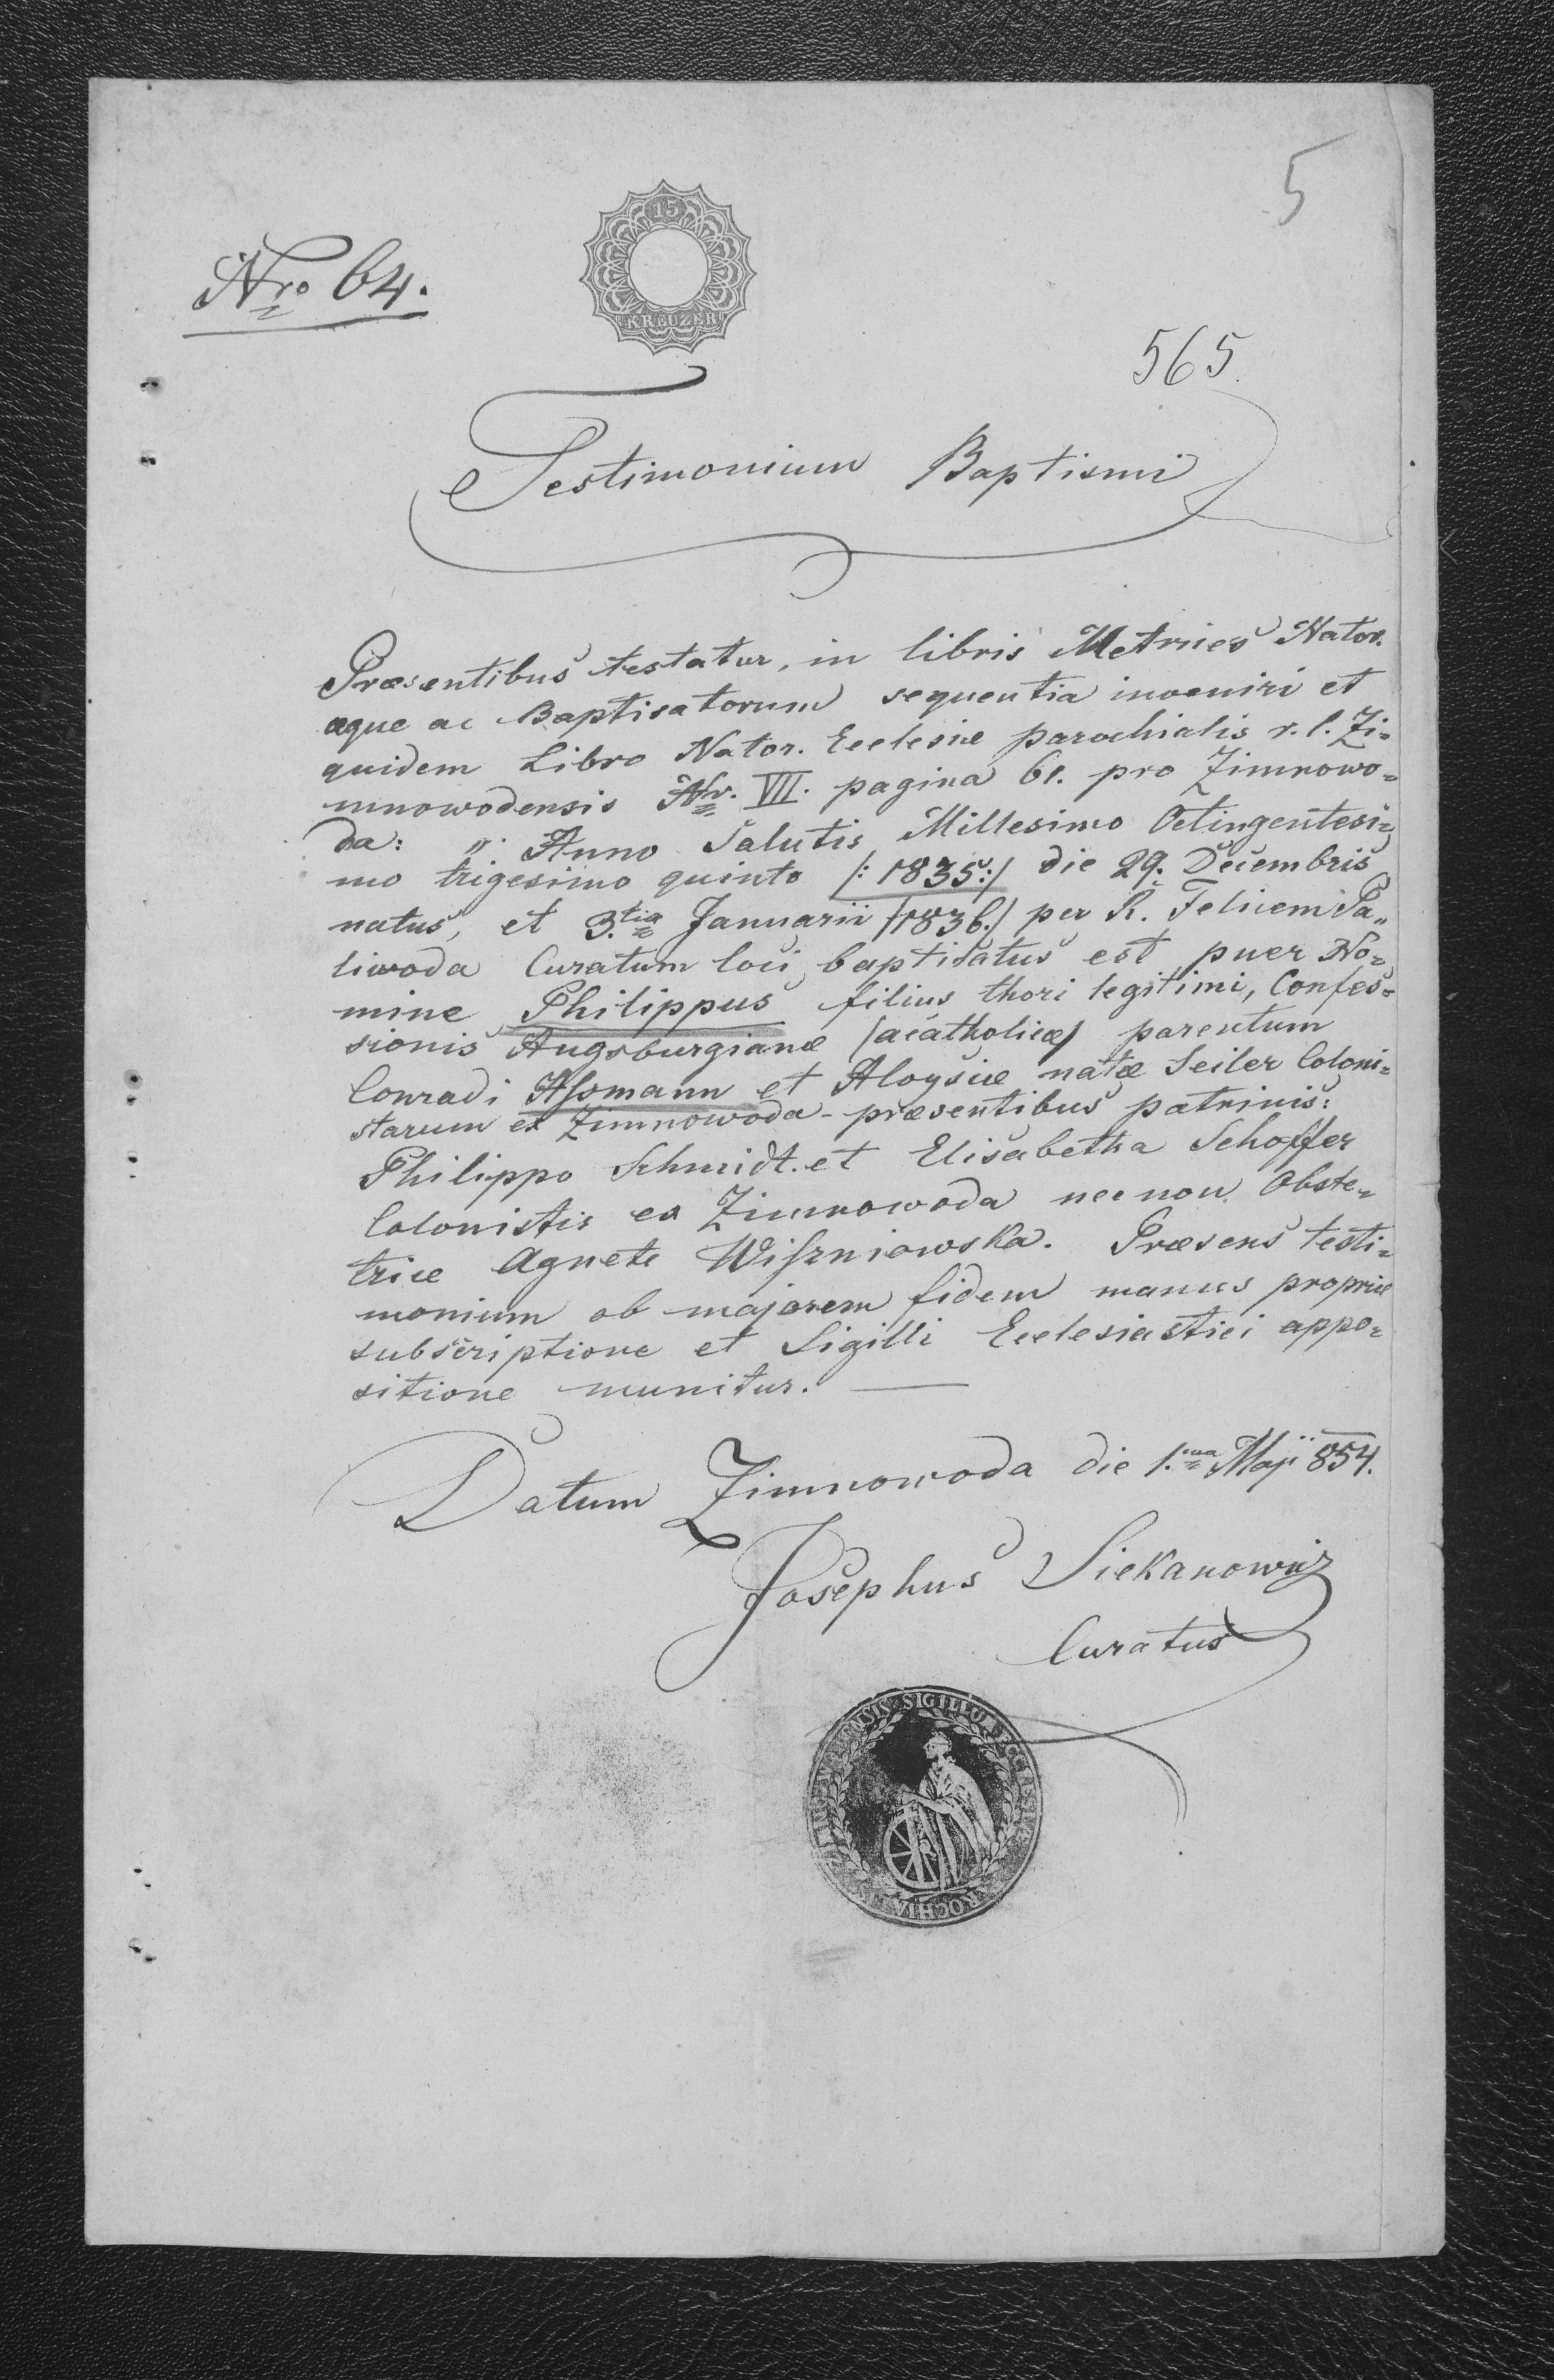 5
15
KREUZER
Nro 64.
565.
Testimonium Baptismi
Præsentibus testatur, in libris Metrices Nator.
æque ac Baptisatorum sequentia inveniri et
quidem Libro Nator. Ecclesiæ parochialis r. l. Zi=
mnowodensis Nr. VII. pagina 61. pro Zimnowo=
da: „ Anno Salutis Millesimo Octingentesi=
mo trigesimo quinto /: 1835 :/ die 29. Decembris
natus, et 3.tia Januarii /1836./ per R. Felicem Pa„
liwoda Curatum loci baptisatus est puer No=
mine Philippus filius thori legitimi, Confes=
sionis Augsburgianæ /acatholicæ/ parentum
Conradi Aſsmann et Aloysiæ natæ Seiler Coloni=
starum ex Zimnowoda - præsentibus patrinis:
Philippo Schmidt. et Elisabetha Schoffer
Colonistis ex Zimnowoda necnon Obste=
trice Agnete Wiſzniowska. Præsens testi=
monium ob majorem fidem manus propriæ
subscriptione et Sigilli Ecclesiastici appo=
sitione munitur. —
Datum Zimnowoda die 1.ma Maji 854.
Josephus Siekanowicz
Curatus
SIGILLU